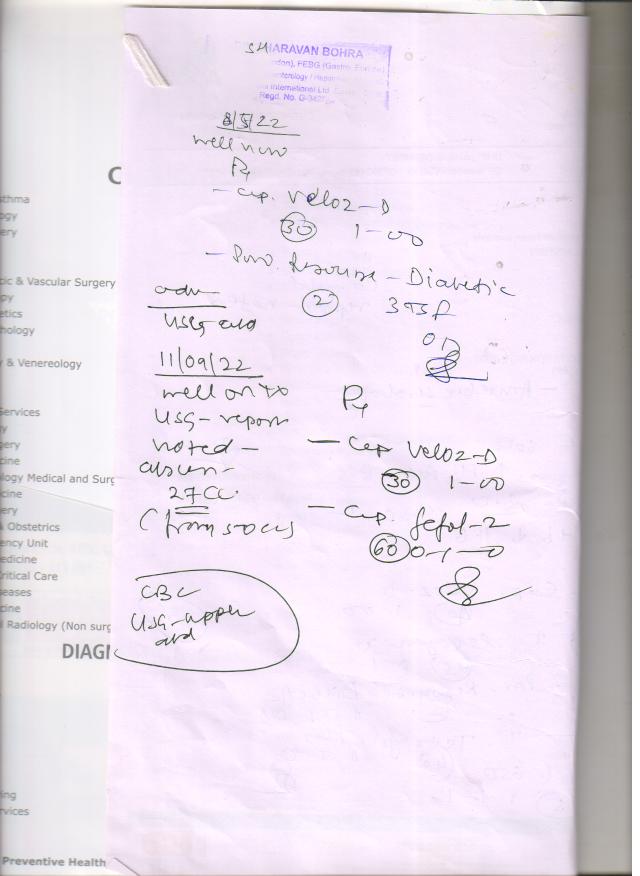 SHARAVAN BOHRA
don), FEBG (Gastro,
nterology /
International Ltd
Regd. No. G-342
8/5/22
well now
Rx
- Cap. Veloz-D
30 1-00
- Resource - Diabetic
2 3TSF
OD
adv
USG abd
11/09/22
well on tx
USG-report
noted -
27CC
(from 50cc
Rx
- Cap Veloz-D
30 1-00
- Cap. fefol-Z
60 0-1-0
CBC
USG-upper
abd
C
sthma
ogy
ery
ic & Vascular Surgery
py
etics
hology
y & Venereology
Services
y
gery
cine
logy Medical and Surg
cine
ery
& Obstetrics
ency Unit
edicine
ritical Care
eases
cine
l Radiology (Non surg
DIAG
ing
rvices
Preventive Health